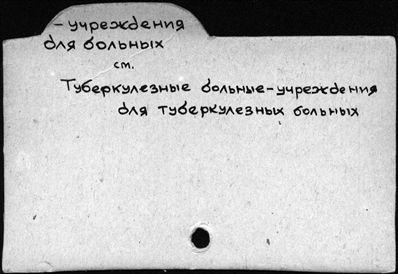 -учреждения
для больных
см.
Туберкулезные больные-учреждения
для туберкулезных больных